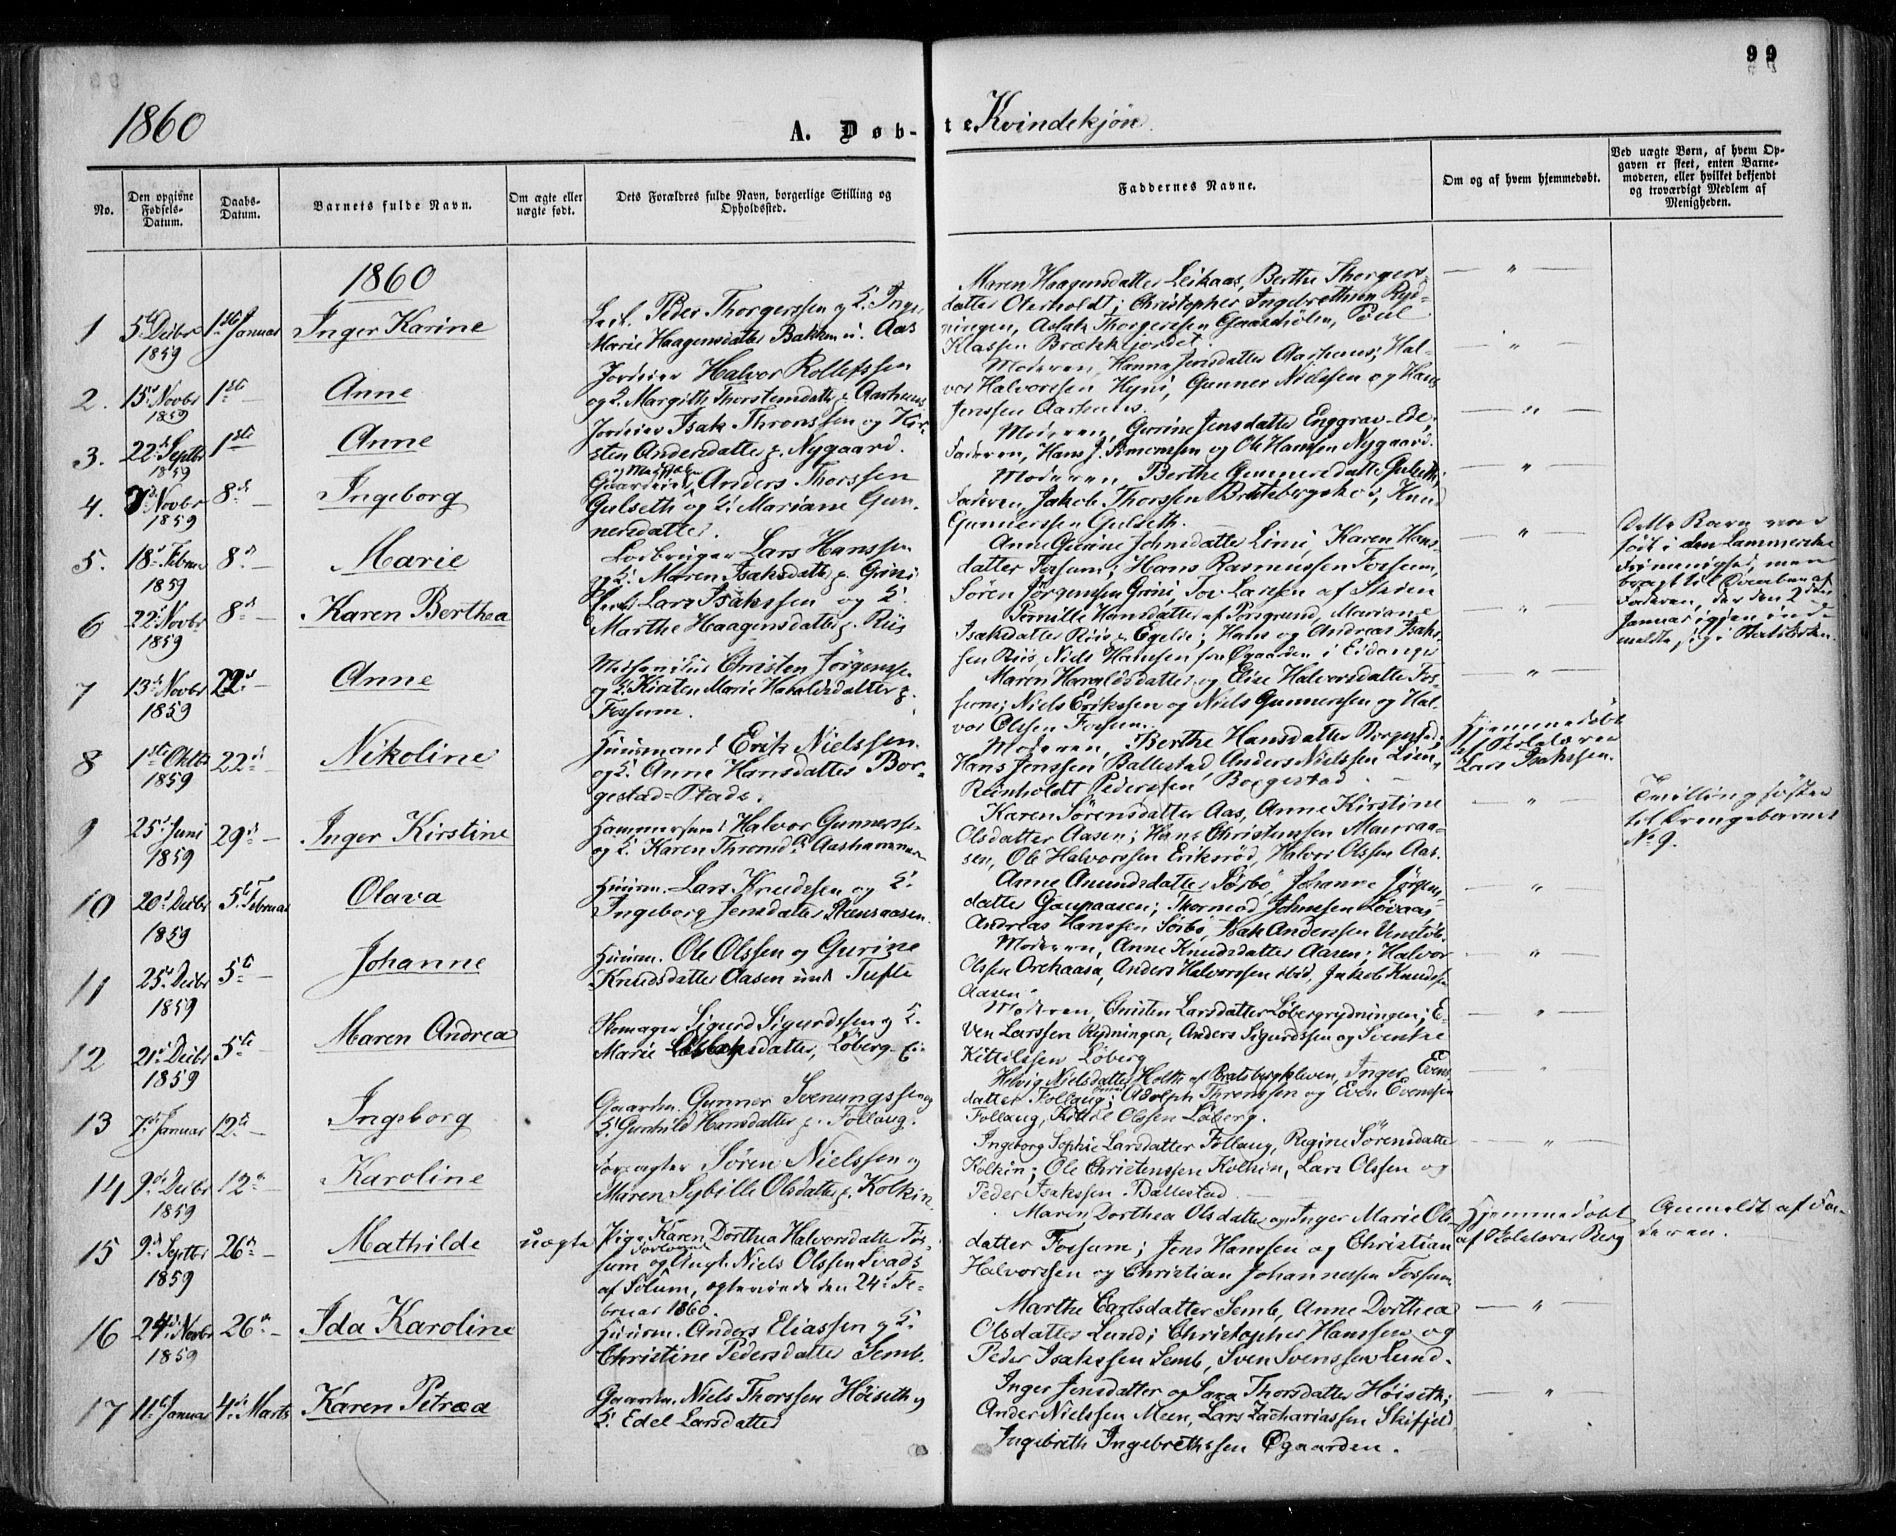 99
1860
A. Døbte Kvindekjøn.
No.
Den opgivne Fødsels-Datum.
Daabs-Datum.
Barnets fulde Navn.
Om ægte eller uægte født.
Dets Forældres fulde Navn, borgerlige Stilling og Opholdssted.
Faddernes Navne.
Om og af hvem hjemmedøbt.
Ved uægte Børn, af hvem Opgaven er skeet, enten Barnemoderen, eller hvilket bekjendt og troværdigt Medlem af Menigheden.
1860
1
5te Decbr 1859
1ste Januar
Inger Karine
Peder Thorgerssen og H. Inger
Marie Haagensdatter Bakken u. Aas
Maren Haagensdatter Leikaas, Berthe Thorgers-
datter Oterholdt; Christopher Ingebrethsen Ryd-
ningen, Aslak Thorgerssen Poul
Klassen Brækkejordet.
2.
15de Novbr 1859
1ste
Anne
Jordeier Halvor Rollefssen
og H. Margith Thorstensdatter p. Aarhuus
Moderen, Hanna Jensdatter Aarhuus; Hal-
vor Halvorssen Hyni, Gunner Nielssen og Hans
Jenssen Aarhuus.
3.
22de Septbr 1859
1ste
Anne
Jordeier Isak Thronssen og Kir-
sten Andersdatter p. Nygaard.
Moderen, Gurine Jensdatter Enggrav-Eie;
Faderen, Hans J. Simonssen og Ole Hanssen Nygaard.
4.
Novbr 1859
8de
Ingeborg
Gaardeier Anders Thorssen
Gulseth og H. Mariane Gun-
nersdatter.
Moderen, Berthe Gunnersdatter Gulseth;
Faderen, Jakob Thorssen Bratsbergskov, Knud
Gunnerssen Gulseth.
5.
18de Februar 1859
8de
Marie
Lars Hanssen
og H. Maren Isaksdatter p. Grini
Anne Gurine Johnsdatter Limi, Karen Hans-
datter Fossum; Hans Rasmussen Fossum,
Søren Jørgenssen Grini, Tov Larssen af Skien
Dette Barn var
født i den Lammerske
Frimenighed, men
bragt til Overhøren af
Faderen, der den 2den
Januar igjen ind-
meldte sig i Statskirken.
6
22de Novbr 1859
8de
Karen Berthea
Lars Isakssen og H.
Marthe Haagensdatter p. Riis
Pernille Hansdatter af Porsgrund, Mariane
Isaksdatter Riis p. Egelie; Hans og Andreas Isaks-
sen Riis, Niels Hanssen fra Øgaarden i Eidanger
7
13de Novbr 1859
22de
Anne
Christen Jørgenssen
og H. Kirsten Marie Haraldsdatter p.
Fossum.
Maren Haraldsdatter og Elise Halvorsdatter Fos-
sum; Niels Erikssen og Niels Gunnerssen og Hal-
vor Olssen Fossum.
8
1ste Oktbr 1859
22de
Nikoline
Huusmand Erik Nielssen
og H. Anne Hansdatter Bor-
gestad-Plads.
Moderen, Berthe Hansdatter Borgestad;
Hans Jenssen Ballestad, Anders Nielssen Lien,
Reinholdt Pederssen Borgestad
Hjemmedøbt
af Skolelærer
Lars Isakssen.
9
25de Juni 1859
29de
Inger Kirstine
Hammersmed Halvor Gunnerss.
og H. Karen Thronsd. Aashammeren
Karen Sørensdatter Aas, Anne Kirstine
Olsdatter Aasen; Hans Christenssen Mauraa-
sen, Ole Halvorssen Eriksrød, Halvor Olssen Aas.
Tvillingsøster
til Drengebarnet
No 9.
10
20de Decbr 1859
5te Februar
Olava
Huusm. Lars Knudssen og H.
Ingeborg Jensdatter Steensaasen.
Anne Amundsdatter Sørbø, Johanne Jørgens-
datter Gaupaasen; Thormod Johnssen Løvaas,
Andreas Hanssen Sørbø, Isak Anderssen Venstøb
11
25de Decbr 1859
5te
Johanne
Huusm. Ole Olssen og Gurine
Knudsdatter Aasen und. Tufte
Moderen, Anne Knudsdatter Aasen; Halvor
Olssen Orekaasa, Anders Halvorssen ibid, Jakob Knudssen
Aasen.
12
21de Decbr 1859
5te
Maren Andrea
Skomager Sigurd Sigurdssen og H.
Marie datter, Løberg-Ei
Moderen, Christen Larsdatter Løbergrydningen; E-
ven Larssen Rydningen, Anders Sigurdssen og Svenke
Kittilssen Løberg
13
7de Januar
12te
Ingeborg
Gaardm. Gunner Svenungssen og
H. Gunhild Hansdatter p. Follaug.
Helvig Nielsdatter Holte af Bratsbergkleven, Inger Evens-
datter Follaug; Adolph Thronssen og Even Evenssen
Follaug, Kittil Olssen Løberg.
14
9de Decbr 1859
12te
Karoline
Forpagter Søren Nielssen og
Maren Sybille Olsdatter p. Kolkin
Ingeborg Sophie Larsdatter Follaug, Regine Sørensdatter
Kolkin; Ole Christenssen Kolkin, Lars Olssen og
Peder Isakssen Ballestad
15
9de Septbr 1859
26de
Mathilde
uægte
Pige Karen Dorthea Halvorsdatter Fos-
sum og Ungk. Niels Olssen Svads
af Solum, ægteviede den 24de Fe-
bruar 1860.
Maren Dorthea Olsdatter og Inger Marie Ols-
datter Fossum; Jens Hanssen og Christian
Halvorssen og Christian Johannessen Fossum
Hjemmedøbt
af Skolelærer Berg
Anmeldt af Fa-
deren.
16
24de Novbr 1859
26de
Ida Karoline
Huusm. Anders Eliassen og H.
Christine Pedersdatter Semb.
Marthe Carlsdatter Semb, Anne Dorthea
Olsdatter Lund; Christopher Hanssen og
Peder Isakssen Semb, Sven Svenssen Lund.
17
11te Januar
4de Marts
Karen Petræa
Gaardm. Niels Thorssen Høiseth og
H. Edel Larsdatter
Inger Jensdatter og Sara Thorsdatter Høiseth;
Ander Nielssen Meen, Lars Zachariassen Skifjeld
Ingebreth Ingebrethssen Øgaarden.